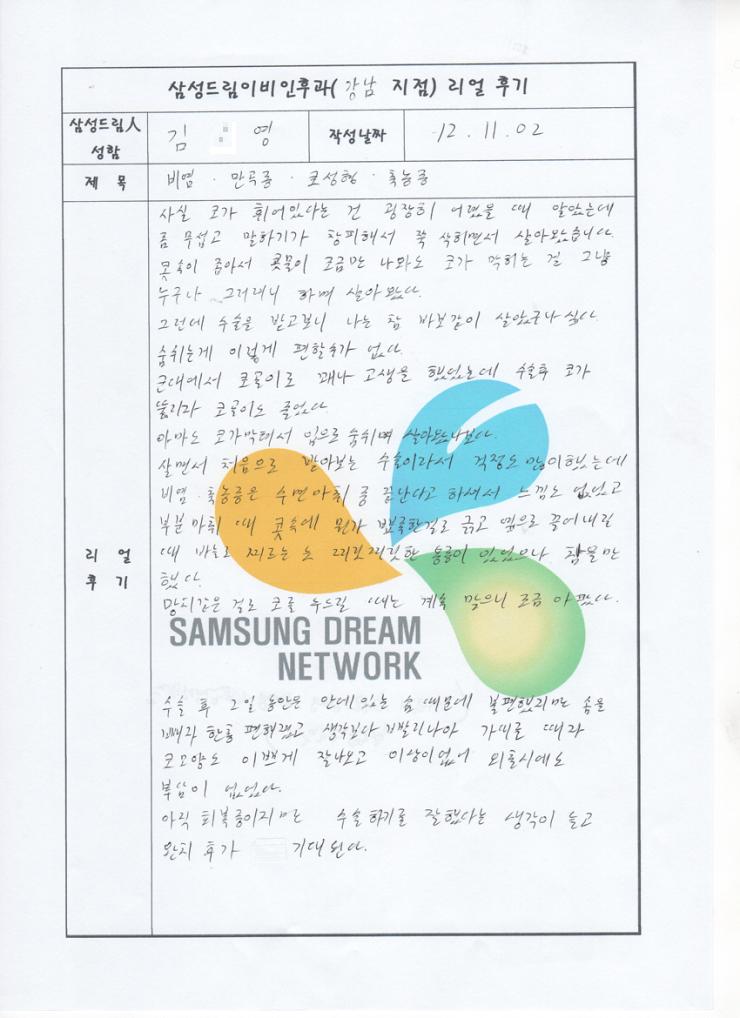 삼성드림이비인후과( 강남 지점) 리얼 후기
삼성드림人 성함
김 영
작성날짜
12. 11. 02
제 목
비염 · 만곡증 · 코성형 · 축농증
리 얼 후 기
사실 코가 휘어있다는 건 굉장히 어렸을 때 알았는데
좀 무섭고 말하기가 창피해서 쭉 삭히면서 살아왔습니다.
콧속이 좁아서 콧물이 조금만 나와도 코가 막히는 걸 그냥
누구나 그러려니 하며 살아왔다.
그런데 수술을 받고보니 나는 참 바보같이 살았구나싶다.
숨쉬는게 이렇게 편할수가 없다.
군대에서 코골이로 꽤나 고생을 했었는데 수술후 코가
뚫리자 코골이도 줄었다.
아마도 코가막혀서 입으로 숨쉬며 살아왔나보다.
살면서 처음으로 받아보는 수술이라서 걱정도 많이했는데
비염 · 축농증은 수면마취 중 끝난다고 하셔서 느낌도 없었고
부분마취 때 콧속에 뭔가 뾰족한걸로 긁고 옆으로 끌어내릴
때 바늘로 찌르는 듯 찌릿찌릿한 통증이 있었으나 참을만
했다.
망치같은 걸로 코를 두드릴 때는 계속 맞으니 조금 아팠다.
SAMSUNG DREAM
NETWORK
수술 후 2일 동안은 안에있는 솜 때문에 불편했지만 솜을
빼자 한층 편해졌고 생각보다 빨리나아 기브를 때자
코모양도 이쁘게 잘나오고 이상이없어 외출시에도
부담이 없었다.
아직 회복중이지만 수술하기를 잘했다는 생각이 들고
완치 후가 기대된다.